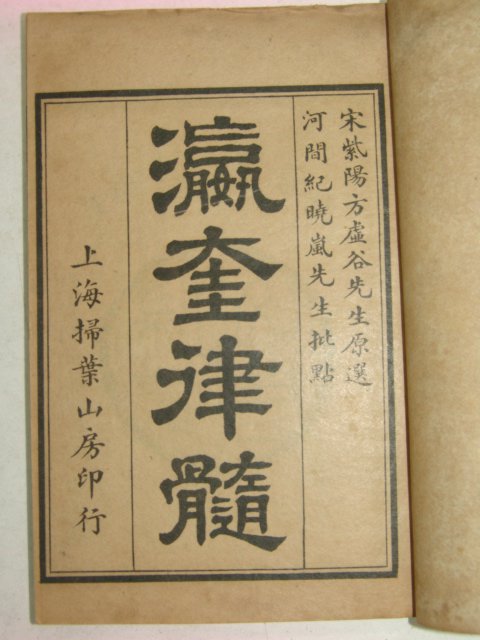 宋紫陽方虛谷先生原選
河間紀曉嵐先生批點
瀛奎律髓
上海掃葉山房印行